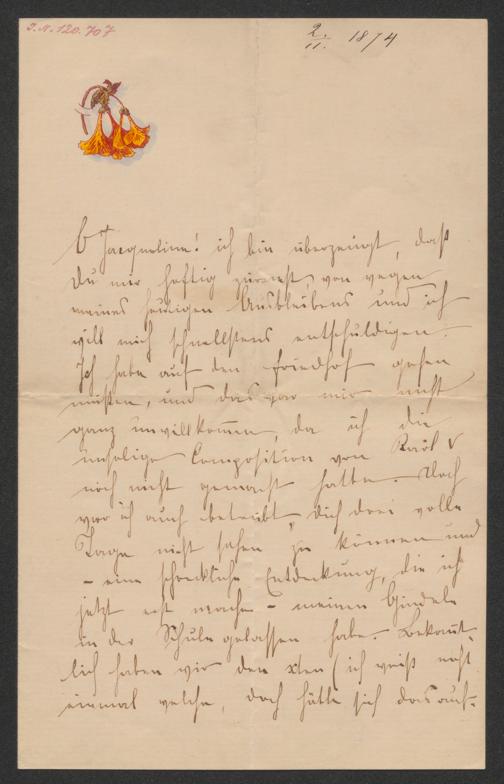 J.N. 120.707
2./11. 1874
O Jacqueline! ich bin überzeugt, daß
Du mir heftig zürnest, von wegen
meines heutigen Ausbleibens und ich
will mich schnellstens entschuldigen.
Ich habe auf den Friedhof gehen
müßen, und das war mir nicht
ganz unwillkom̅en, da ich die
unselige Composition von
noch nicht gemacht hatte. Doch
war ich auch betrübt, Dich drei volle
Tage nicht sehen zu können und
– eine schreckliche Entdeckung, die ich
jetzt erst mache – meinen Gindely
in der Schule gelassen habe. Bekan̅t-
lich haben wir den xten (ich weiß nicht
einmal welche, doch hätte sich das auf-